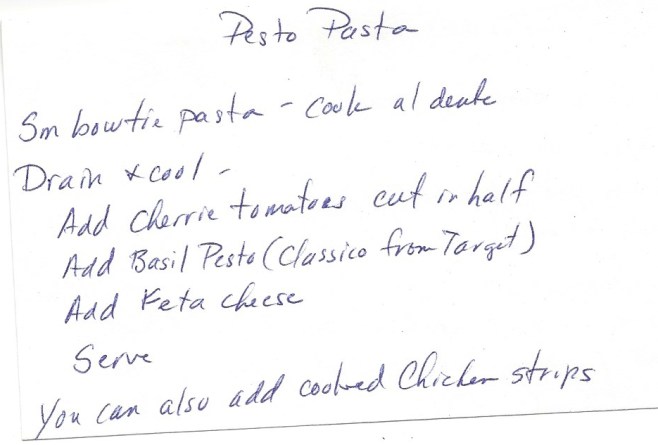 Pesto Pasta
Sm bowtie pasta - cook al dente
Drain & cool -
Add Cherrie tomatoes cut in half
Add Basil Pesto (Classico from Target)
Add Feta cheese
Serve
You can also add cooked Chicken strips